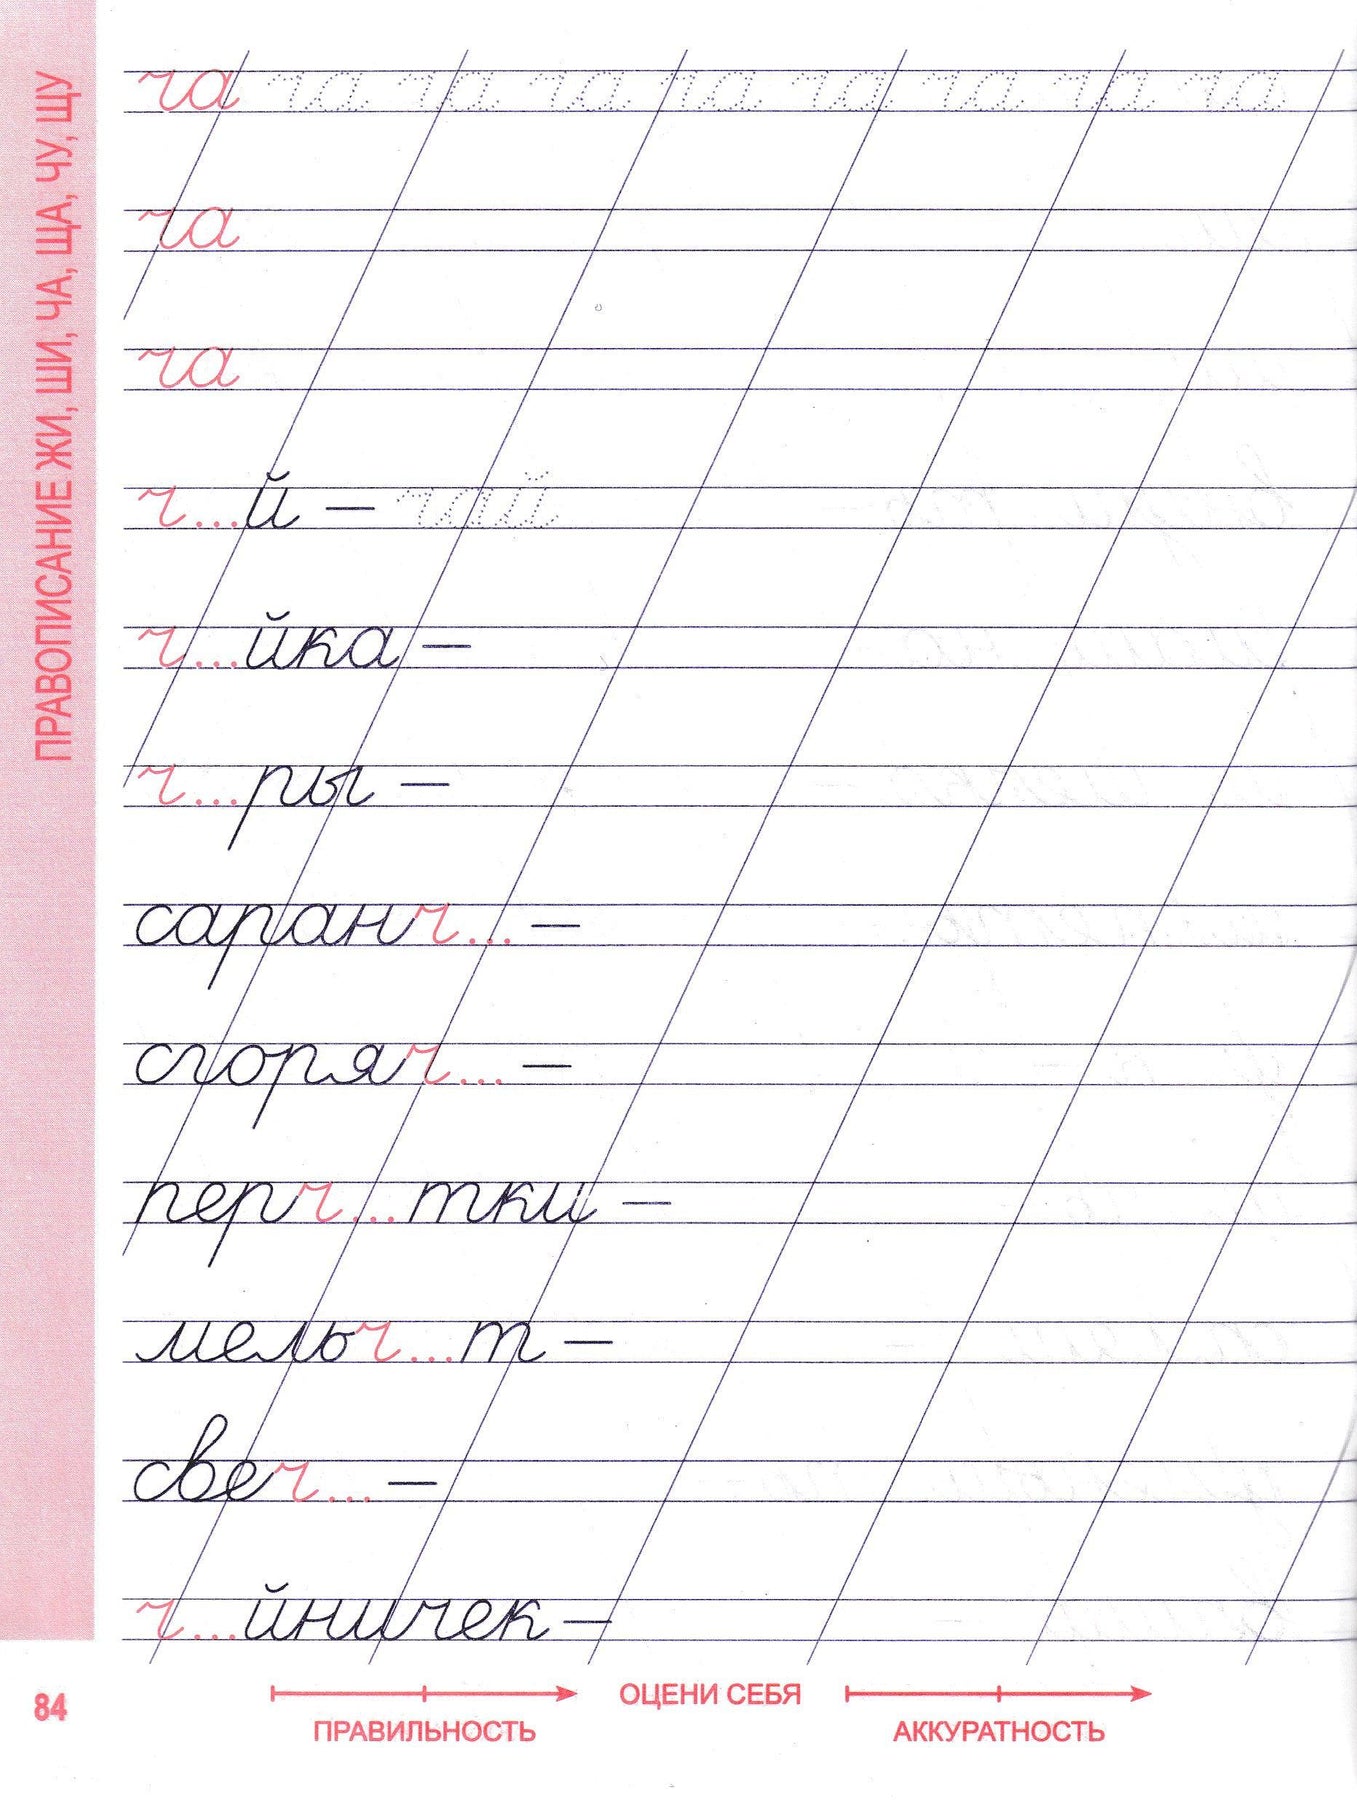 ПРАВОПИСАНИЕ ЖИ, ШИ, ЧА, ЩА, ЧУ, ЩУ
ча ча ча ча ча ча ча ча ча
ча
ча
ч...й – чай
ч...йка –
ч...ры –
саранч... –
сгоряч... –
перч...тки –
мельч...т –
свеч... –
ч...йничек –
84
ОЦЕНИ СЕБЯ
ПРАВИЛЬНОСТЬ АККУРАТНОСТЬ